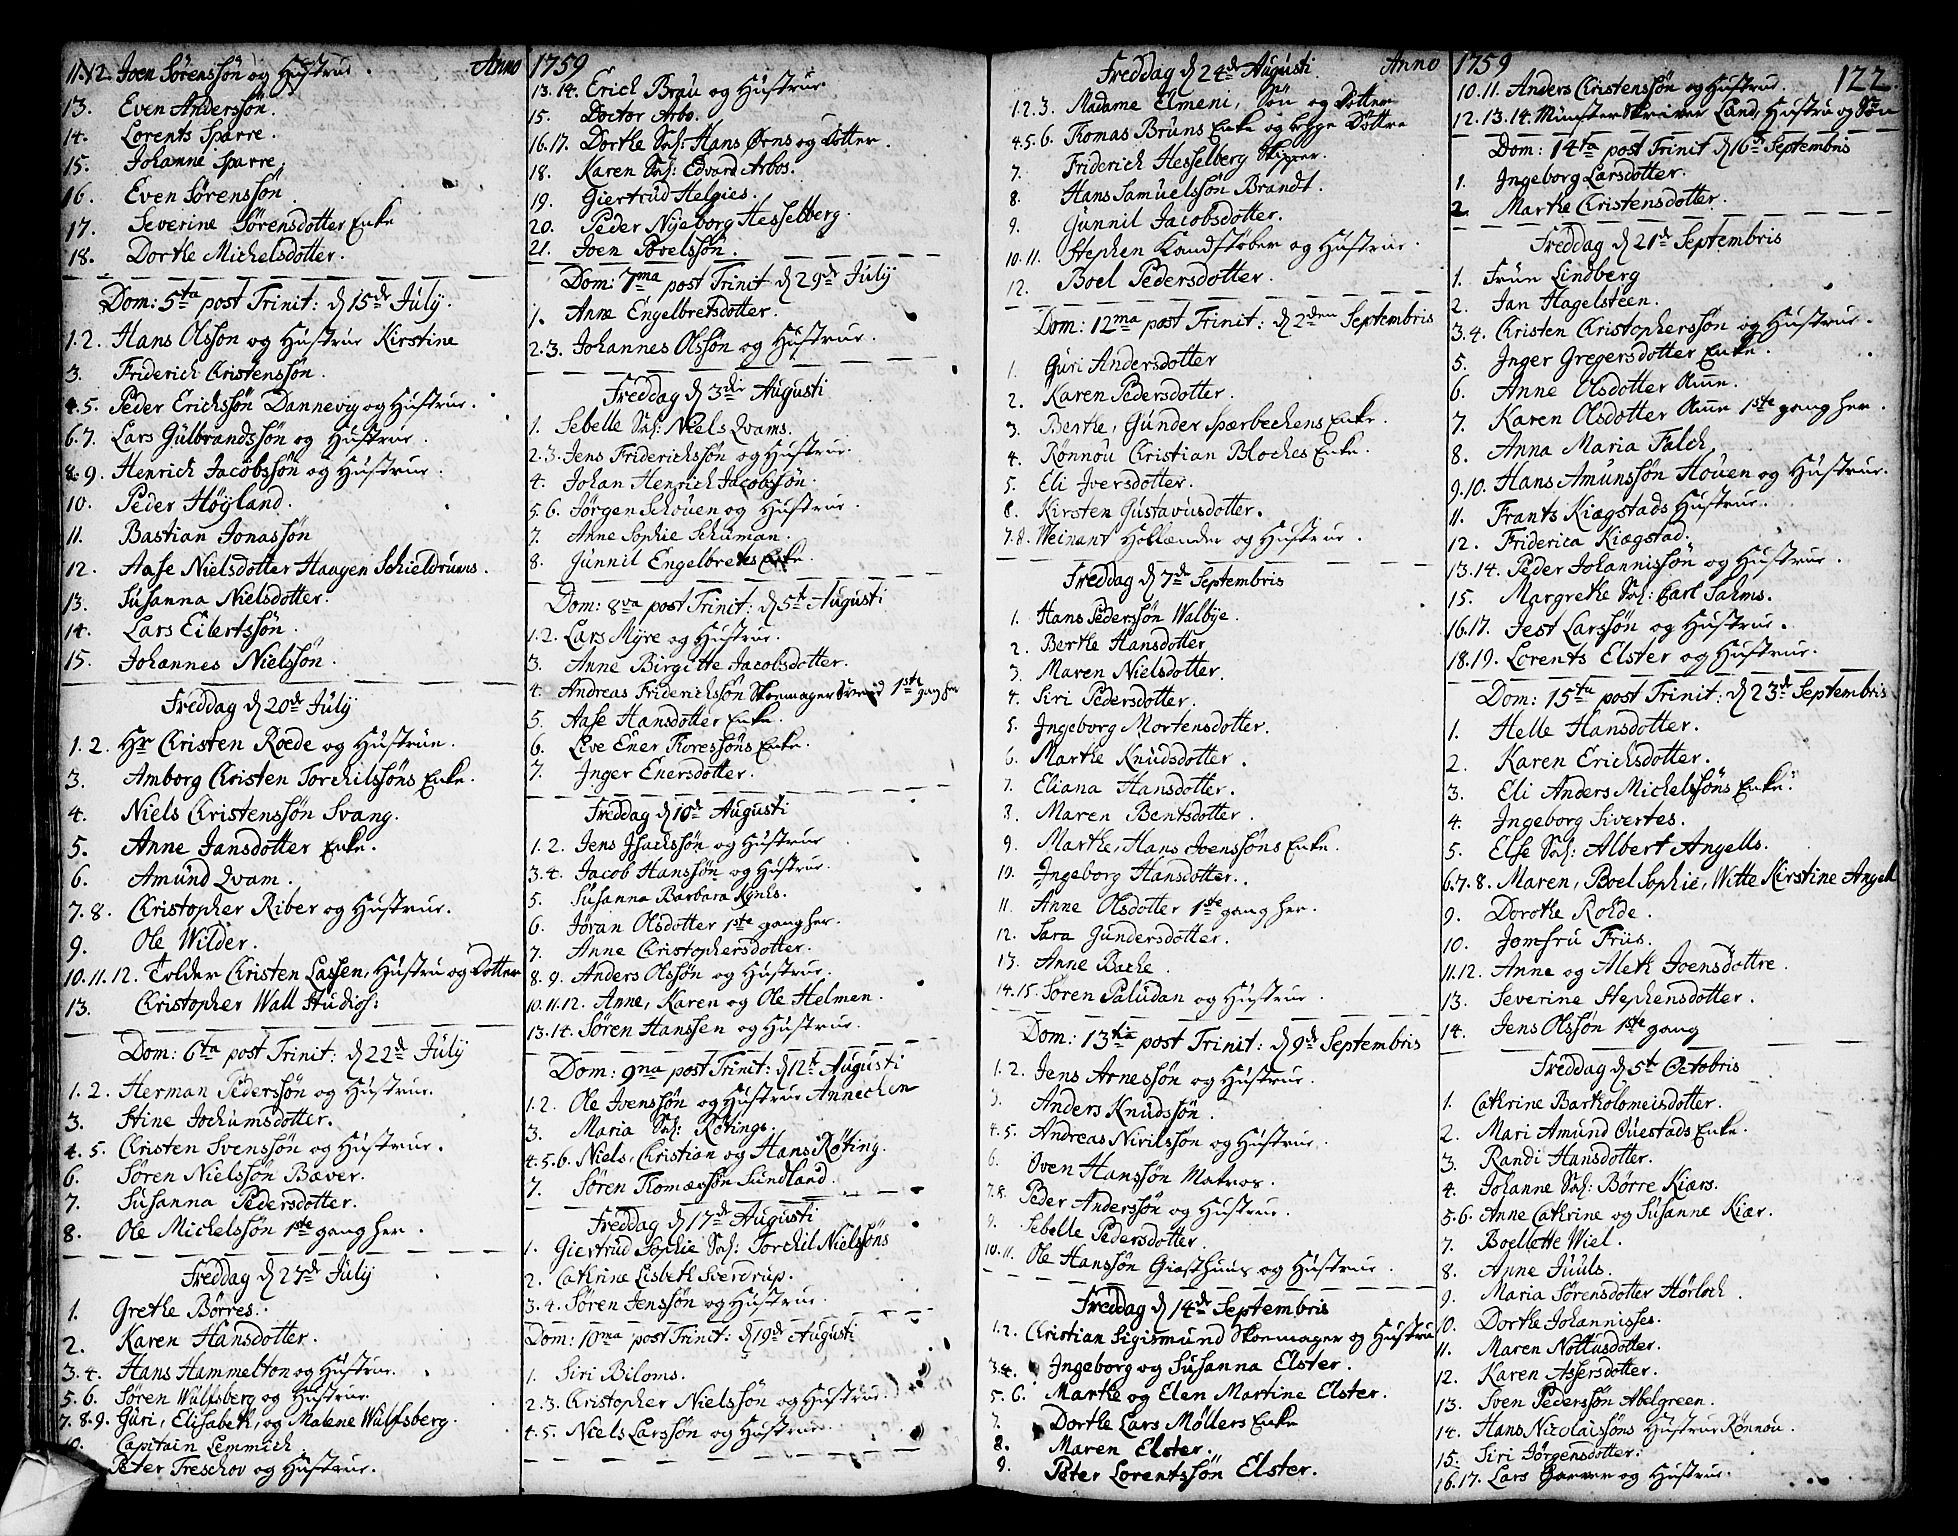 Anno 1759
11.12. Joen Sørenssøn og Hustrue.
13. Even Anderssøn.
14. Lorents Sparre.
15. Johanne Sparre.
16. Even Sørenssøn.
17. Severine Sørensdotter Enke
18. Dorthe Michelsdotter.
Dom: 5ta post Trinit: d 15de July.
1.2. Hans Olssøn og Hustrue Kirstine
3. Friderich Christenssøn.
4.5. Peder Erichssøn Dannevig og Hustrue.
6.7. Lars Gulbrandssøn og Hustrue.
8.9. Henrich Jacobssøn og Hustrue.
10. Peder Høyland.
11. Bastian Jonassøn
12. Aase Nielsdotter Haagen Schieldrums.
13. Susanna Nielsdotter.
14. Lars Eilertssøn.
15. Johannes Nielssøn.
Freddag d 20de July
1.2. Hr Christen Roede og Hustrue.
3. Amborg Christen Torchilssøns Enke.
4. Niels Christenssøn Svang.
5. Anne Jansdotter Enke.
6. Amund Qvam.
7.8. Christopher Riber og Hustrue.
9. Ole Wilder.
10.11.12. Tolder Christen Lassen, Hustru og Dotter
13. Christopher Wall Studios:
Dom: 6ta post Trinit: d 22de July
1.2. Herman Pederssøn og Hustrue.
3. Stine Jochumsdotter.
4.5. Christen Svenssøn og Hustrue.
6. Søren Nielssøn Bæver.
7. Susanna Pedersdotter.
8. Ole Michelssøn 1ste gang her.
Freddag d 27de July
1. Grethe Børres.
2. Karen Hansdotter.
3.4. Hans Hammelton og Hustrue.
5.6. Søren Wulfsberg og Hustrue.
7.8.9. Guri, Elisabeth, og Malene Wulfsberg.
10. Capitain Lemmich
Peter Treschov og Hustrue.
13.14. Erich Brau og Hustrue
15. Doctor Arbo.
16.17. Dorthe Sal: Hans Ørns og Dotter.
18. Karen Sal: Edvard Arbos.
19. Giertrud Helgies.
20. Peder Nyeborg Hesselberg.
21. Joen Povelssøn.
Dom: 7ma post Trinit: d 29de July
1. Anne Engelbretsdotter.
2.3. Johannes Olssøn og Hustrue.
Freddag d 3die Augusti
1. Sebelle Sal: Niels Qvams.
2.3. Jens Friderichssøn og Hustrue.
4. Johan Henrich Jacobssøn.
5.6. Jørgen Schouen og Hustrue.
7. Anne Sophie Schuman.
8. Gunnil Engelbrets Enke.
Dom: 8va post Trinit: d 5t Augusti
1.2. Lars Myre og Hustrue.
3. Anne Birgitte Jacobsdotter.
4. Andreas Friderichssøn Skoemager 1ste gang her
5. Aase Hansdotter Enke.
6. Live Ener Thoressøns Enke.
7. Inger Enersdotter.
Freddag d 10de Augusti
1.2. Jens Isachssøn og Hustrue
3.4. Jacob Hanssøn og Hustrue.
5. Susanna Barbara Kynes.
6. Jøran Olsdotter 1ste gang her.
7. Anne Christophersdotter.
8.9. Anders Olssøn og Hustrue.
10.11.12. Anne, Karen og Ole Helmen.
13.14. Søren Hanssen og Hustrue.
Dom: 9na post Trinit: d 12t Augusti
1.2. Ole Ivenssøn og Hustrue Annechen
3. Maria Sal: Røtings.
4.5.6. Niels, Christian og Hans Røting.
7. Søren Thomæssøn Sundland.
Freddag d 17de Augusti
1. Giertrud Sophie Sal: Torchil Nielssøns
2. Cathrine Lisbeth Sverdrup.
3.4. Søren Jenssøn og Hustrue
Dom: 10ma post Trinit: d 19de Augusti
1. Siri Biloms.
2.3. Christopher Nielssøn og Hustrue.
4.5. Niels Larssøn og Hustrue.
Anno 1759
122.
Freddag d 24de Augusti
1.2.3. Madame Elmeni, Søn og Dotter
4.5.6. Thomas Bruns Enke og begge Døttre
7. Friderich Hesselberg Skipper.
8. Hans Samuelssøn Brandt.
9. Gunnil Jacobsdotter.
10.11. Stephen Kandstøber og Hustrue.
12. Boel Pedersdotter.
Dom: 12ma post Trinit: d 2den Septembris
1. Guri Andersdotter
2. Karen Pedersdotter.
3. Berthe, Gunder Spærbechens Enke.
4. Rønnou Christian Bloches Enke.
5. Eli Iversdotter.
8. Kirsten Gustavusdotter.
7.8. Weinant Hollænder og Hustrue.
Freddag d 7de Septembris
1. Hans Pederssøn Walbye.
2. Berthe Hansdotter
3. Maren Nielsdotter.
4. Siri Pedersdotter.
5. Ingeborg Mortensdotter.
6. Marthe Knudsdotter.
7. Eliana Hansdotter.
8. Maren Bentsdotter.
9. Marthe, Hans Joenssøns Enke.
10. Ingeborg Hansdotter.
11. Anne Olsdotter 1ste gang her.
12. Sara Gundersdotter.
13. Anne Bache.
14.15. Søren Paludan og Hustrue.
Dom: 13tia post Trinit: d 9de Septembris
1.2. Jens Arnessøn og Hustrue.
3. Anders Knudssøn.
4.5. Andreas Nirilssøn og Hustrue.
6. Oven Hanssøn Matros.
7.8. Peder Anderssøn og Hustrue.
9. Sebelle Pedersdotter.
10.11. Ole Hanssøn Giæsthuus og Hustrue.
Freddag d 14de Septembris
1.2. Christian Sigismund Skoemager og Hustrue
3.4. Ingeborg og Susanna Elster.
5.6. Marthe og Elen Martine Elster.
7. Dorthe Lars Møllers Enke
8. Maren Elster.
9. Peter Lorentssøn Elster.
10.11. Anders Christenssøn og Hustrue.
12.13.14. Munsterskriver Land, Hustru og Søn
Dom: 14ta post Trinit d 16de Septembris
1. Ingeborg Larsdotter.
2. Marthe Christensdotter.
Freddag d 21de Septembris
1. Frue Lindberg
2. Jan Hagelsteen.
3.4. Christen Christopherssøn og Hustrue.
5. Inger Gregersdotter Enke.
6. Anne Olsdotter Amme.
7. Karen Olsdotter Amme 1ste gang her.
8. Anna Maria Falch.
9.10. Hans Amunssøn Houen og Hustrue.
11. Frants Kiægstads Hustrue.
12. Friderica Kiægstad.
13.14. Peder Johannissøn og Hustrue.
15. Margrethe Sal: Carl Sahms.
16.17. Jest Larssøn og Hustrue.
18.19. Lorents Elster og Hustrue.
Dom: 15ta post Trinit: d 23de Septembris
1. Helle Hansdotter.
2. Karen Erichsdotter.
3. Eli Anders Michelssøns Enke.
4. Ingeborg Sivertes.
5. Else Sal: Albert Angells.
6.7.8. Maren, Boel Sophie, Witte Kirstine Angell
9. Dorothe Rohde.
10. Jomfru Friis.
11.12. Anne og Aleth Joensdøttre.
13. Severine Stephensdotter.
14. Jens Olssøn 1ste gang
Freddag d 5t Octobris
1. Cathrine Bartholomeisdotter.
2. Mari Amund Ouestads Enke.
3. Randi Hansdotter.
4. Johanne Sal: Børre Kiærs.
5.6. Anne Cathrine og Susanne Kiær.
7. Boellette Wiel.
8. Anne Juuls.
9. Maria Sørensdotter Hørloch.
10. Dorthe Johannisses.
11. Maren Nottusdotter.
12. Karen Assersdotter.
13. Sven Pederssøn Abelgreen.
14. Hans Nicolaissøns Hustrue Rønnou.
15. Siri Jørgensdotter.
16.17. Lars Garver og Hustrue.